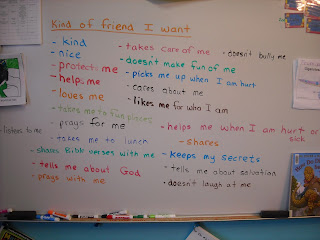 Kind of friend I want
- kind
- nice
- protects me
- helps me
- loves me
- takes me to fun places
- prays for me
- takes me to lunch
- shares Bible verses with me
- tells me about God
- prays with me
- listens to me
- takes care of me
- doesn't make fun of me
- picks me up when I am hurt
- cares about me
- likes me for who I am
- doesn't bully me
- helps me when I am hurt or sick
- shares
- keeps my secrets
- tells me about salvation
- doesn't laugh at me